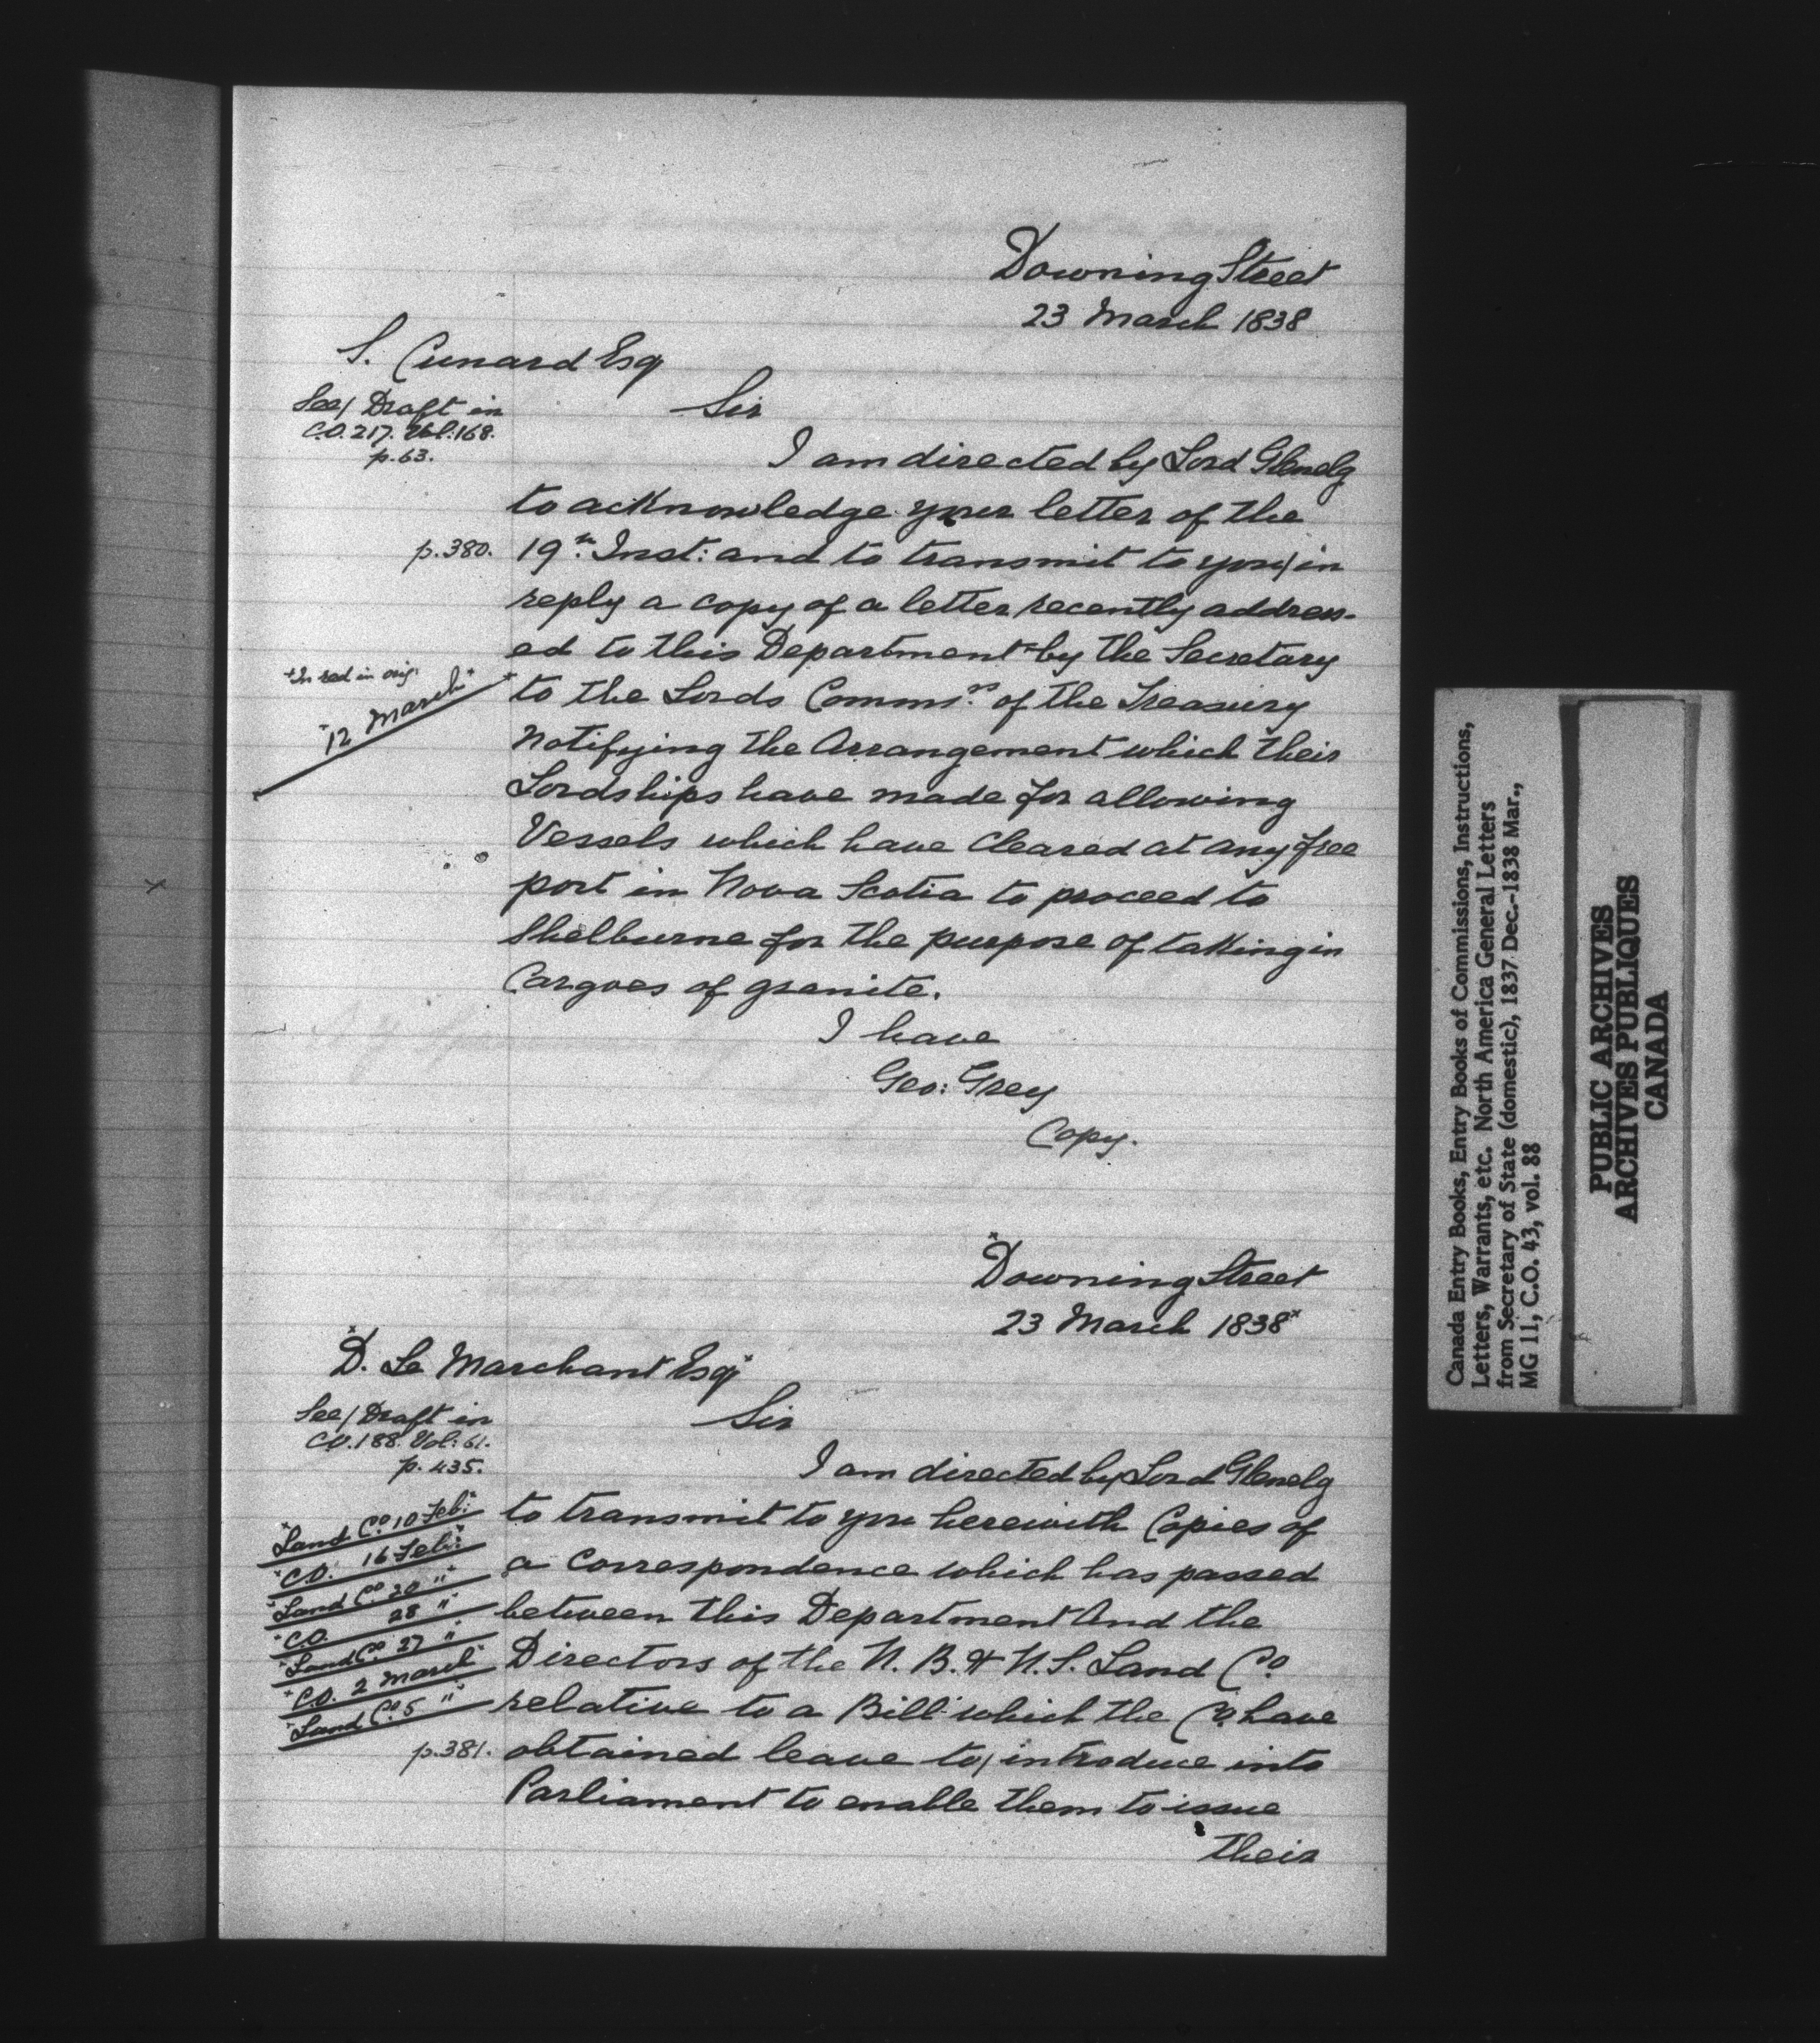 Downing Street
23 March 1838
S. Cunard Esq
See/ Draft in
C.O. 217. Vol: 168.
p. 63.
Sir
I am directed by Lord Glenelg
to acknowledge your letter of the
p. 380. 19th Inst: and to transmit to you/ in
reply a copy of a letter recently address-
ed to this Department by the Secretary
+In red in orig.
"12 March"
to the Lords Commrs. of the Treasury
notifying the Arrangement which their
Lordships have made for allowing
Vessels which have cleared at any free
port in Nova Scotia to proceed to
Shelburne for the purpose of taking in
Cargoes of granite.
I have
Geo: Grey
Copy.
Downing Street
23 March 1838
D. Le Marchant Esq
See/ Draft in
C.O. 188. Vol: 61.
p. 435.
Sir
I am directed by Lord Glenelg
to transmit to you herewith Copies of
a Correspondence which has passed
between this Department And the
Directors of the N. B. & N. S. Land Co.
relative to a Bill which the Co. have
p. 381. obtained leave to/ introduce into
Parliament to enable them to issue
their
Land Co. 10 Feb:
C.O. 16 Feb:
Land Co. 20 "
C.O. 28 "
Land Co. 27 "
C.O. 2 March
Land Co. 5 "
Canada Entry Books, Entry Books of Commissions, Instructions,
Letters, Warrants, etc. North America General Letters
from Secretary of State (domestic), 1837 Dec.-1838 Mar.,
MG 11, C.O. 43, vol. 88
PUBLIC ARCHIVES
ARCHIVES PUBLIQUES
CANADA